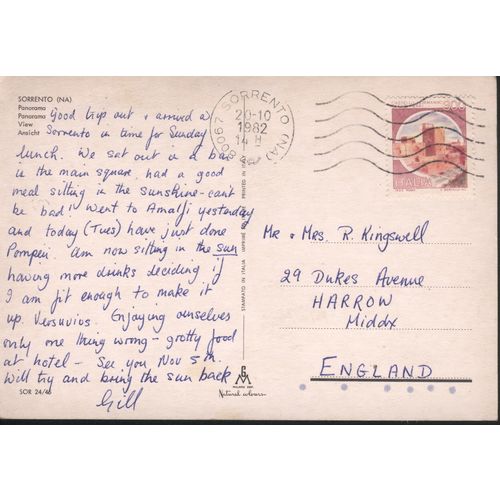 SORRENTO (NA)
Panorama
Panorama
View
Ansicht
Good trip out & arrived at
Sorrento in time for Sunday
lunch. We sat out in a bar
in the main square, had a good
meal sitting in the sunshine - can't
be bad! Went to Amalfi yesterday
and today (Tues) have just done
Pompeii. Am now sitting in the sun
having more drinks deciding if
I am fit enough to make it
up Vesuvios. Enjoying ourselves
only one thing wrong - grotty food
at hotel - See you Nov 5th.
Will try and bring the sun back
Gill
SOR 24/46
STAMPATO IN ITALIA
PRINTED IN ITALY
Natural colours
80067 SORRENTO (NA)
20-10
1982
14
ITALIA
Mr & Mrs R. Kingswell
29 Dukes Avenue
HARROW
Middx
ENGLAND